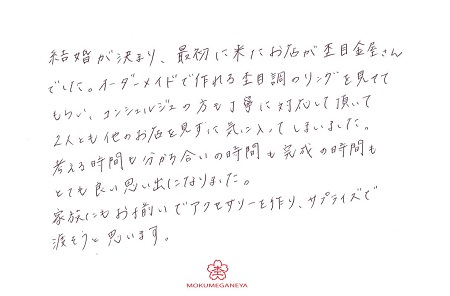 結婚が決まり、最初に来たお店が杢目金屋さん
でした。オーダーメイドで作れる杢目調のリングを見せて
もらい、コンシェルジュの方も丁寧に対応して頂いて
2人とも他のお店を見ずに気に入ってしまいました。
考える時間も分かち合いの時間も完成の時間も
とても良い思い出になりました。
家族にもお揃いでアクセサリーを作り、サプライズで
渡そうと思います。
MOKUMEGANEYA